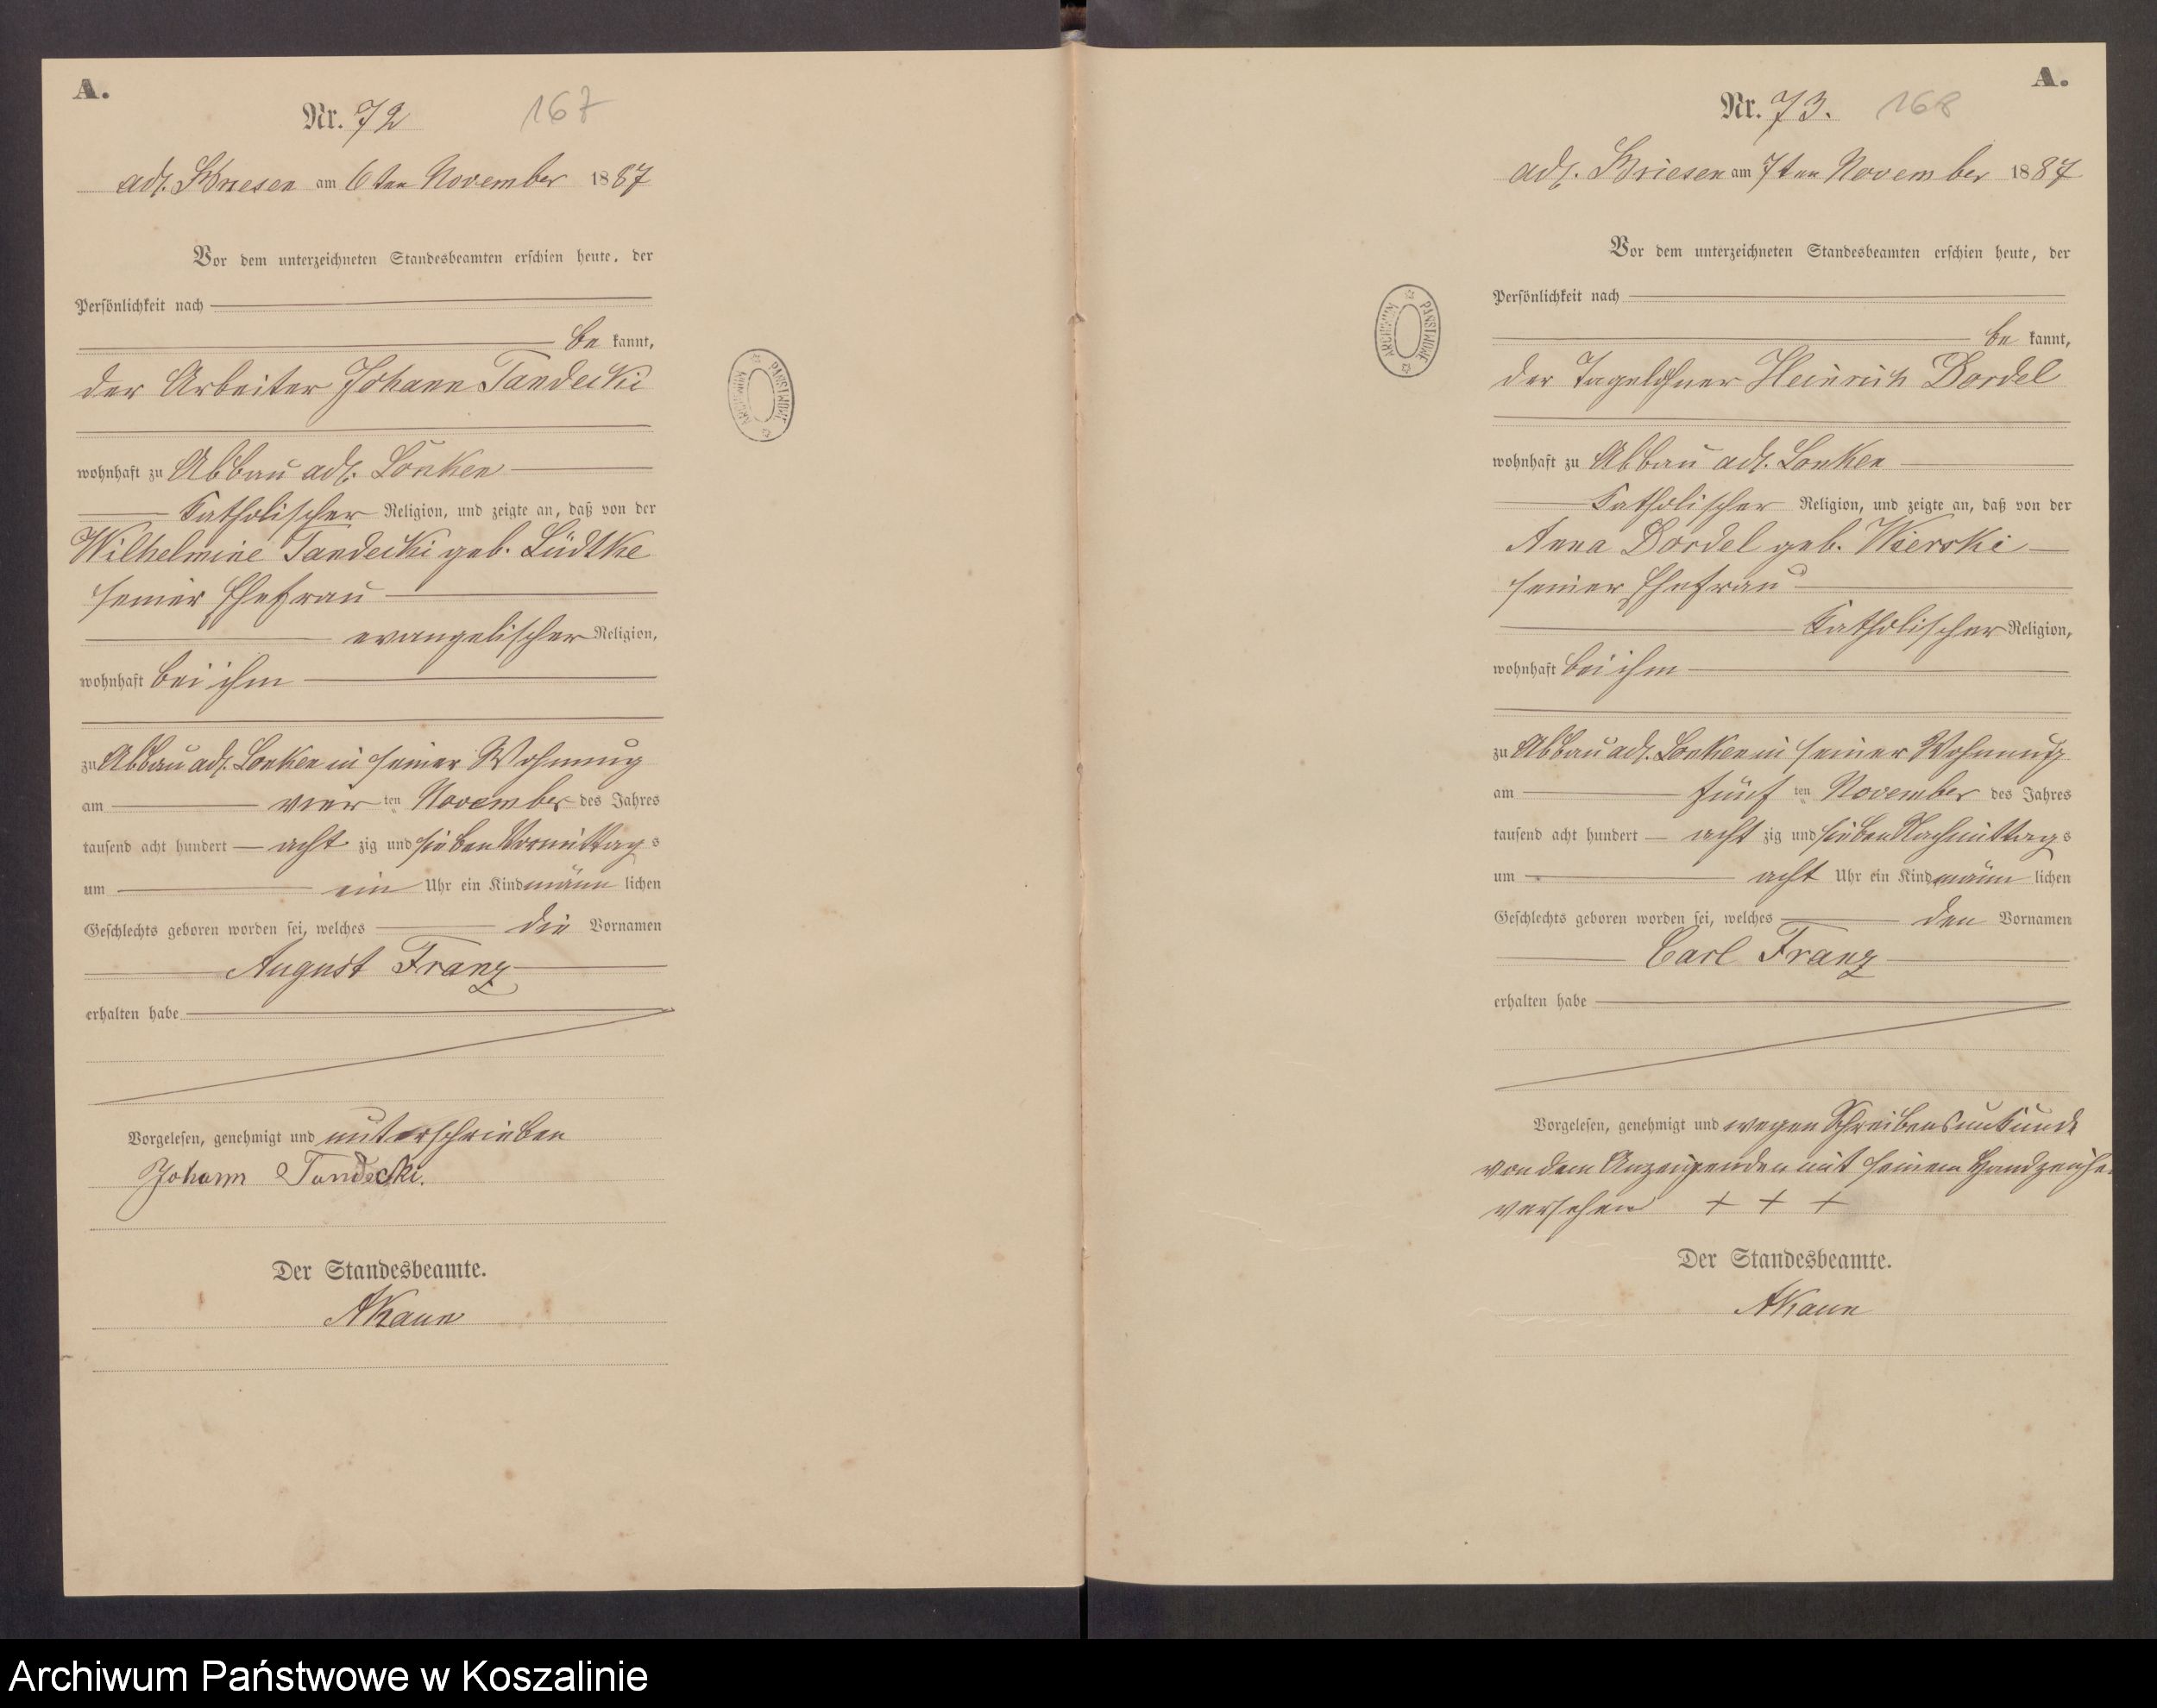 A.
Nr. 72
167
adl. Briesen am 6ten November 1887
Vor dem unterzeichneten Standesbeamten erschien heute, der
Persönlichkeit nach
be kannt,
der Arbeiter Johann Tandecki
wohnhaft zu Abbau adl. Lonken
Katholischer Religion, und zeigte an, daß von der
Wilhelmine Tandecki geb. Lüdtke
seiner Ehefrau
evangelischer Religion,
wohnhaft bei ihm
zu Abbau adl. Lonken in seiner Wohnung
am vier ten November des Jahres
tausend acht hundert acht zig und sieben Vormittags
um ein Uhr ein Kind männ lichen
Geschlechts geboren worden sei, welches die Vornamen
August Franz
erhalten habe
Vorgelesen, genehmigt und unterschrieben
Johann Tandecki.
Der Standesbeamte.
ARCHIWUM PAŃSTWOWE
A.
Nr. 73.
168
adl. Briesen am 7ten November 1887
Vor dem unterzeichneten Standesbeamten erschien heute, der
Persönlichkeit nach
be kannt,
der Tagelöhner Heinrich Dordel
wohnhaft zu Abbau adl. Lonken
Katholischer Religion, und zeigte an, daß von der
Anna Dordel geb. Wierski
seiner Ehefrau
Katholischer Religion,
wohnhaft bei ihm
zu Abbau adl. Lonken in seiner Wohnung
am fünf ten November des Jahres
tausend acht hundert acht zig und sieben Nachmittags
um acht Uhr ein Kind männ lichen
Geschlechts geboren worden sei, welches den Vornamen
Carl Franz
erhalten habe
Vorgelesen, genehmigt und wegen Schreibensunkunde
von dem Anzeigenden mit seinem Handzeichen
versehen + + +
Der Standesbeamte.
ARCHIWUM PAŃSTWOWE
Archiwum Państwowe w Koszalinie